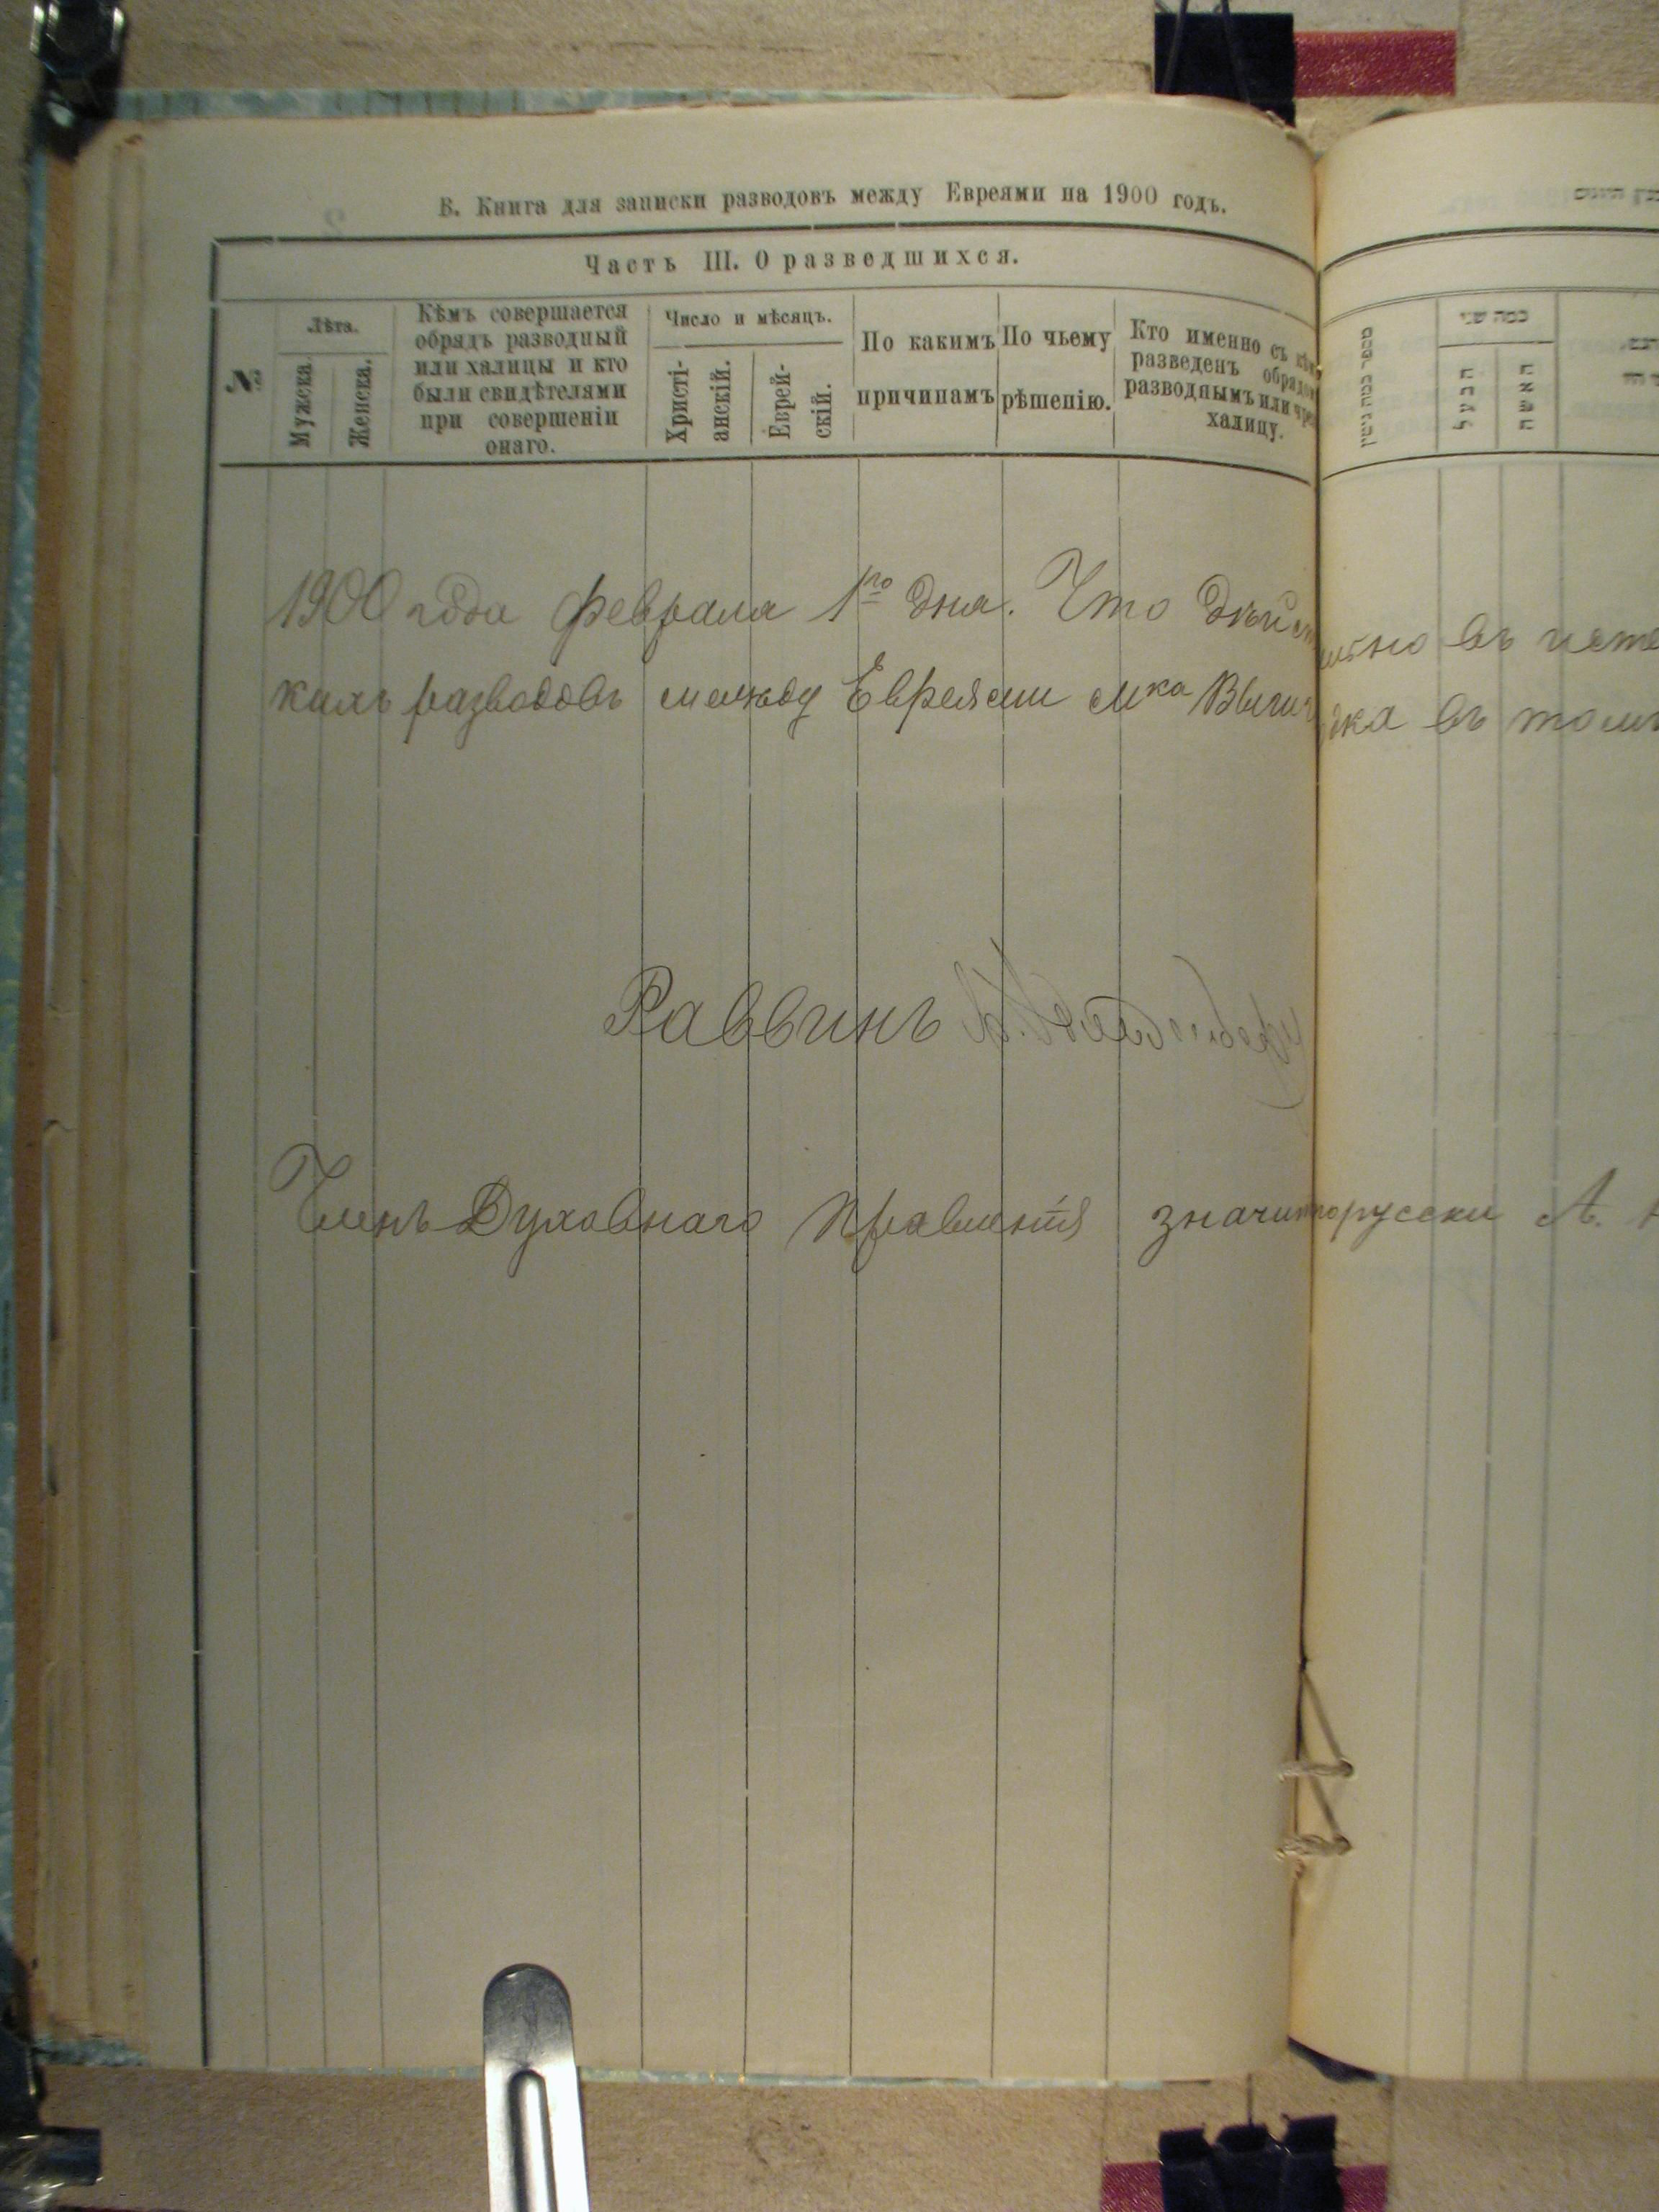 В. Книга для записки разводовъ между Евреями на 1900 годъ.
Часть III. О разведшихся.
№
Лѣта.
Мужска.
Женска.
Кѣмъ совершается
обрядъ разводный
или халицы и кто
были свидѣтелями
при совершеніи
онаго.
Число и мѣсяцъ.
Христі-
анскій.
Еврей-
скій.
По какимъ
причинамъ
По чьему
рѣшенію.
Кто именно съ
разведенъ обрядом
разводнымъ или чрез
халицу.
1900 года февраля 1го дня. Что
кихъ разводовъ между Евреями мка
Раввинъ
Членъ Духовнаго Правленія
כמה שני
הבעל
האשה
но въ исте
ка въ томъ
русски А.